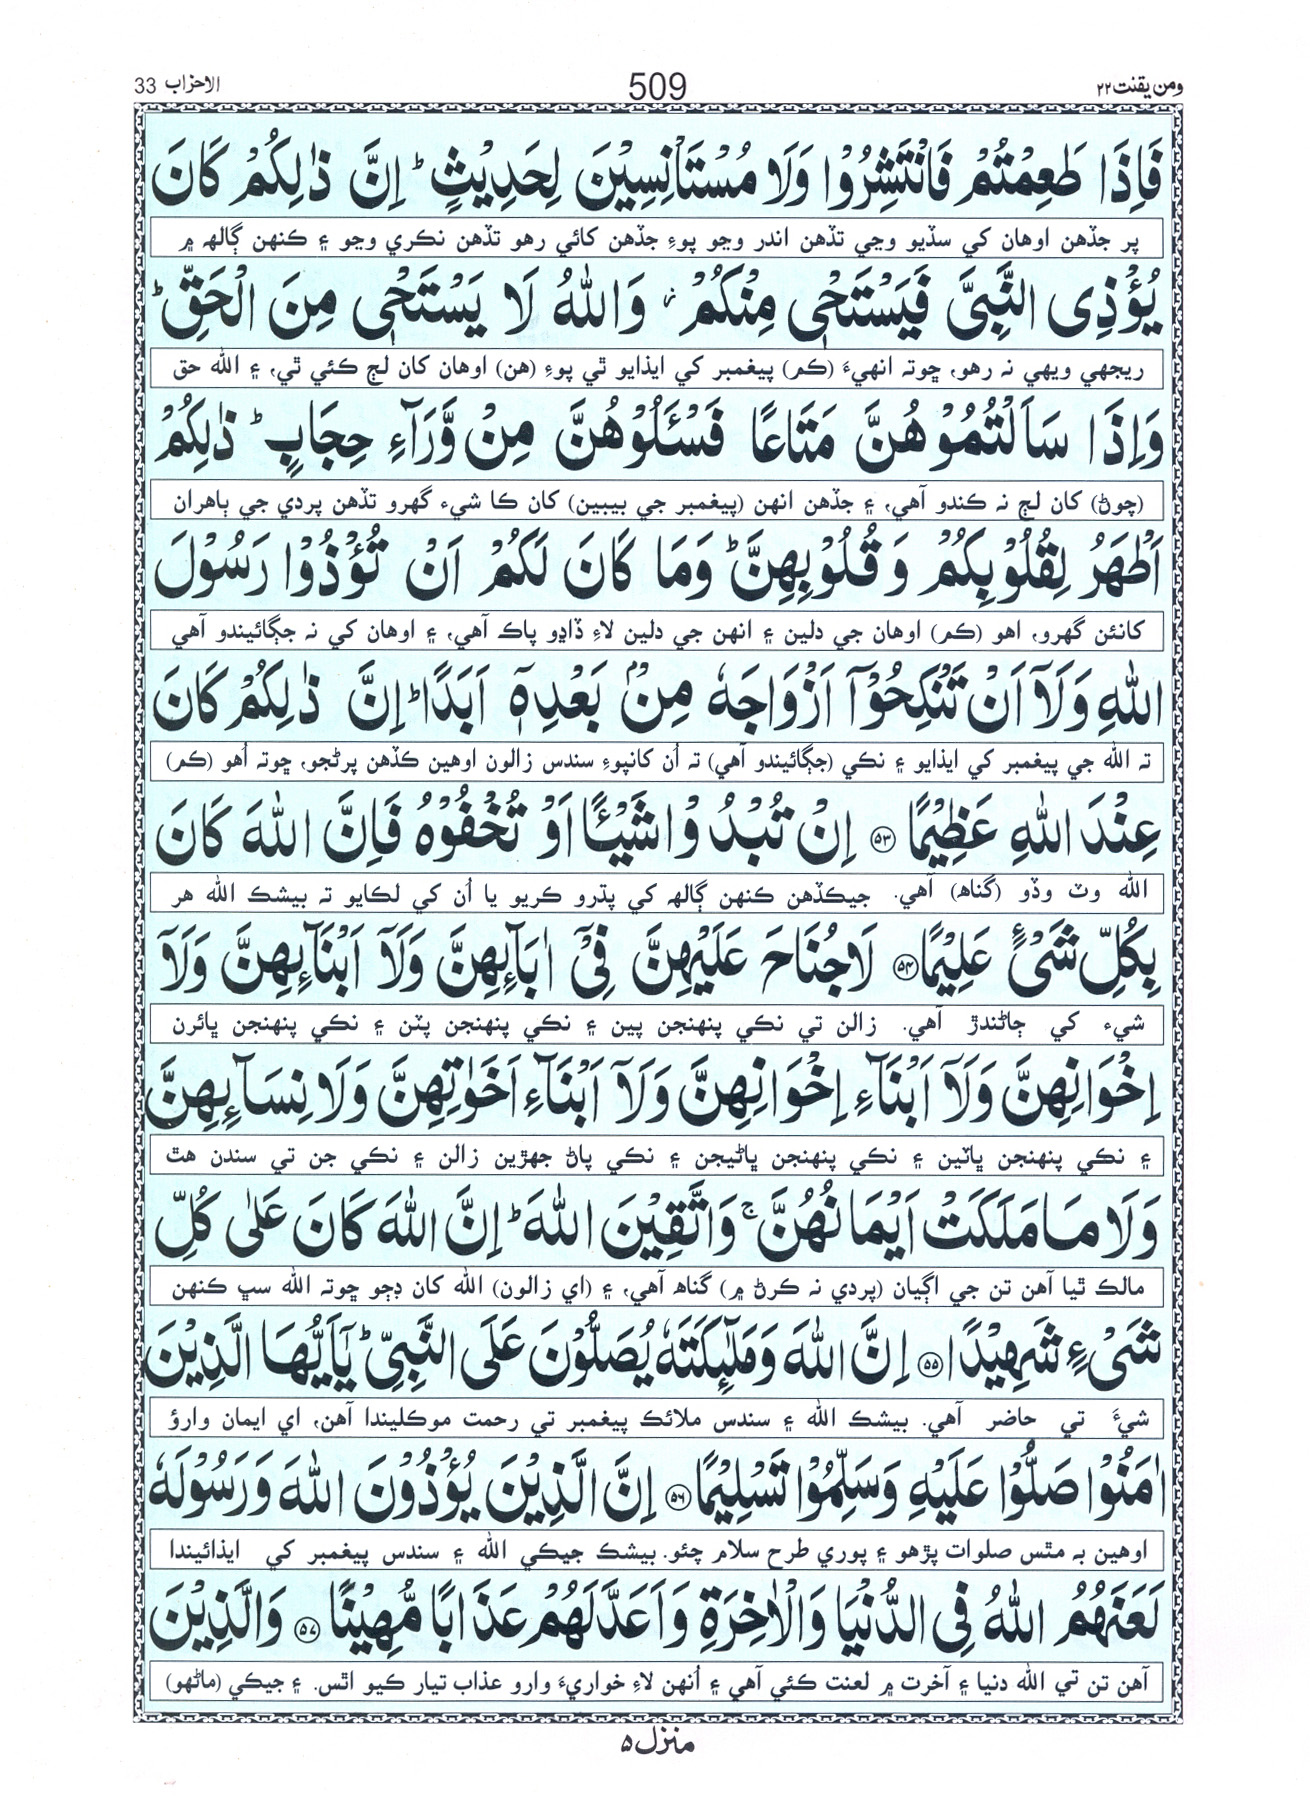 ومن يقنت ٢٢
509
الاحزاب 33
فَاِذَا طَعِمْتُمْ فَانْتَشِرُوْا وَلَا مُسْتَاْنِسِيْنَ لِحَدِيْثٍ ؕ اِنَّ ذٰلِكُمْ كَانَ
پر جڏهن اوهان کي سڏيو وڃي تڏهن اندر وڃو پوءِ جڏهن کائي رهو تڏهن نڪري وڃو ۽ ڪنهن ڳالهہ ۾
يُؤْذِى النَّبِىَّ فَيَسْتَحْىٖ مِنْكُمْ ؗ وَاللّٰهُ لَا يَسْتَحْىٖ مِنَ الْحَقِّ ؕ
ريجهي ويهي نہ رهو، ڇوتہ انهيءَ (ڪم) پيغمبر کي ايذايو ٿي پوءِ (هن) اوهان کان لڄ ڪئي ٿي، ۽ الله حق
وَاِذَا سَاَلْتُمُوْهُنَّ مَتَاعًا فَسْئَلُوْهُنَّ مِنْ وَّرَآءِ حِجَابٍ ؕ ذٰلِكُمْ
(چوڻ) کان لڄ نہ ڪندو آهي، ۽ جڏهن انهن (پيغمبر جي بيبين) کان ڪا شيءِ گهرو تڏهن پردي جي ٻاهران
اَطْهَرُ لِقُلُوْبِكُمْ وَقُلُوْبِهِنَّ ؕ وَمَا كَانَ لَكُمْ اَنْ تُؤْذُوْا رَسُوْلَ
کانئن گهرو، اهو (ڪم) اوهان جي دلين ۽ انهن جي دلين لاءِ ڏاڍو پاڪ آهي، ۽ اوهان کي نہ جڳائيندو آهي
اللّٰهِ وَلَآ اَنْ تَنْكِحُوْٓا اَزْوَاجَهٗ مِنْۢ بَعْدِهٖٓ اَبَدًا ؕ اِنَّ ذٰلِكُمْ كَانَ
تہ الله جي پيغمبر کي ايذايو ۽ نڪي (جڳائيندو آهي) تہ اُن کانپوءِ سندس زالون اوهين ڪڏهن پرڻجو، ڇوتہ اُهو (ڪم)
عِنْدَ اللّٰهِ عَظِيْمًا ۵۳ اِنْ تُبْدُوْا شَيْـًٔا اَوْ تُخْفُوْهُ فَاِنَّ اللّٰهَ كَانَ
الله وٽ وڏو (گناهہ) آهي. جيڪڏهن ڪنهن ڳالهہ کي پڌرو ڪريو يا اُن کي لڪايو تہ بيشڪ الله هر
بِكُلِّ شَىْءٍ عَلِيْمًا ۵۴ لَا جُنَاحَ عَلَيْهِنَّ فِىْٓ اٰبَآئِهِنَّ وَلَآ اَبْنَآئِهِنَّ وَلَآ
شيءِ کي ڄاڻندڙ آهي. زالن تي نڪي پنهنجن پيئن ۽ نڪي پنهنجن پٽن ۽ نڪي پنهنجن ڀائرن
اِخْوَانِهِنَّ وَلَآ اَبْنَآءِ اِخْوَانِهِنَّ وَلَآ اَبْنَآءِ اَخَوٰتِهِنَّ وَلَا نِسَآئِهِنَّ
۽ نڪي پنهنجن ڀاٽين ۽ نڪي پنهنجن ڀاڻيجن ۽ نڪي پاڻ جهڙين زالن ۽ نڪي جن تي سندن هٿ
وَلَا مَا مَلَكَتْ اَيْمَانُهُنَّ ۚ وَاتَّقِيْنَ اللّٰهَ ؕ اِنَّ اللّٰهَ كَانَ عَلٰى كُلِّ
مالڪ ٿيا آهن تن جي اڳيان (پردي نہ ڪرڻ ۾) گناهہ آهي، ۽ (اي زالون) الله کان ڊڄو ڇوتہ الله سڀ ڪنهن
شَىْءٍ شَهِيْدًا ۵۵ اِنَّ اللّٰهَ وَمَلٰٓئِكَتَهٗ يُصَلُّوْنَ عَلَى النَّبِىِّ ؕ يٰٓاَيُّهَا الَّذِيْنَ
شيءَ تي حاضر آهي. بيشڪ الله ۽ سندس ملائڪ پيغمبر تي رحمت موڪليندا آهن، اي ايمان وارؤ
اٰمَنُوْا صَلُّوْا عَلَيْهِ وَسَلِّمُوْا تَسْلِيْمًا ۵۶ اِنَّ الَّذِيْنَ يُؤْذُوْنَ اللّٰهَ وَرَسُوْلَهٗ
اوهين بہ مٿس صلوات پڙهو ۽ پوري طرح سلام چئو. بيشڪ جيڪي الله ۽ سندس پيغمبر کي ايذائيندا
لَعَنَهُمُ اللّٰهُ فِى الدُّنْيَا وَالْاٰخِرَةِ وَاَعَدَّ لَهُمْ عَذَابًا مُّهِيْنًا ۵۷ وَالَّذِيْنَ
آهن تن تي الله دنيا ۽ آخرت ۾ لعنت ڪئي آهي ۽ اُنهن لاءِ خواريءَ وارو عذاب تيار ڪيو اٿس. ۽ جيڪي (ماڻهو)
منزل ۵